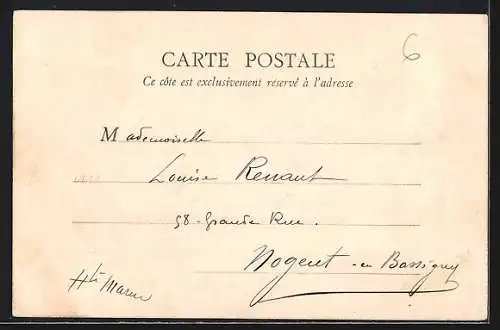 6
CARTE POSTALE
Ce côte est exclusivement reservé à l'adresse
Mademoiselle
Louise Renaut
58 - Grande Rue.
Nogent - en Bassigny
Hte Marne